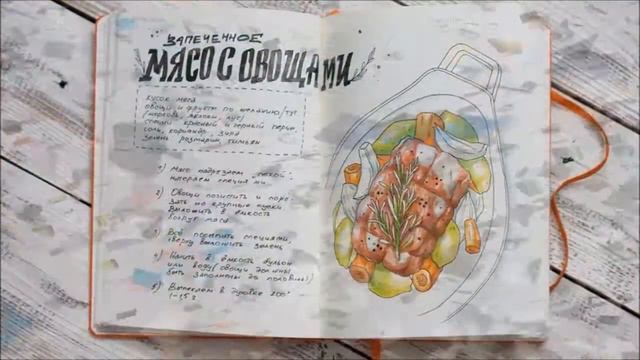 ЗАПЕЧЕННОЕ
МЯСО С ОВОЩАМИ
кусок мяса
овощи и фрукты по желанию/тут
(морковь, яблоки, лук)
специи: красный и черный перец
соль, кориандр, зира
зелень розмарин, тимьян
1) Мясо надрезаем "сеткой"
натираем специями
2) Овощи почистить и поре-
зать на крупные куски.
Выложить в ёмкость
вокруг мяса
3) Всё посыпать специями,
сверху выложить зелень
4) Налить в ёмкость бульон
или воду (овощи должны
быть заполнены до половины)
5) Выпекаем в духовке 200°
1-1,5 ч